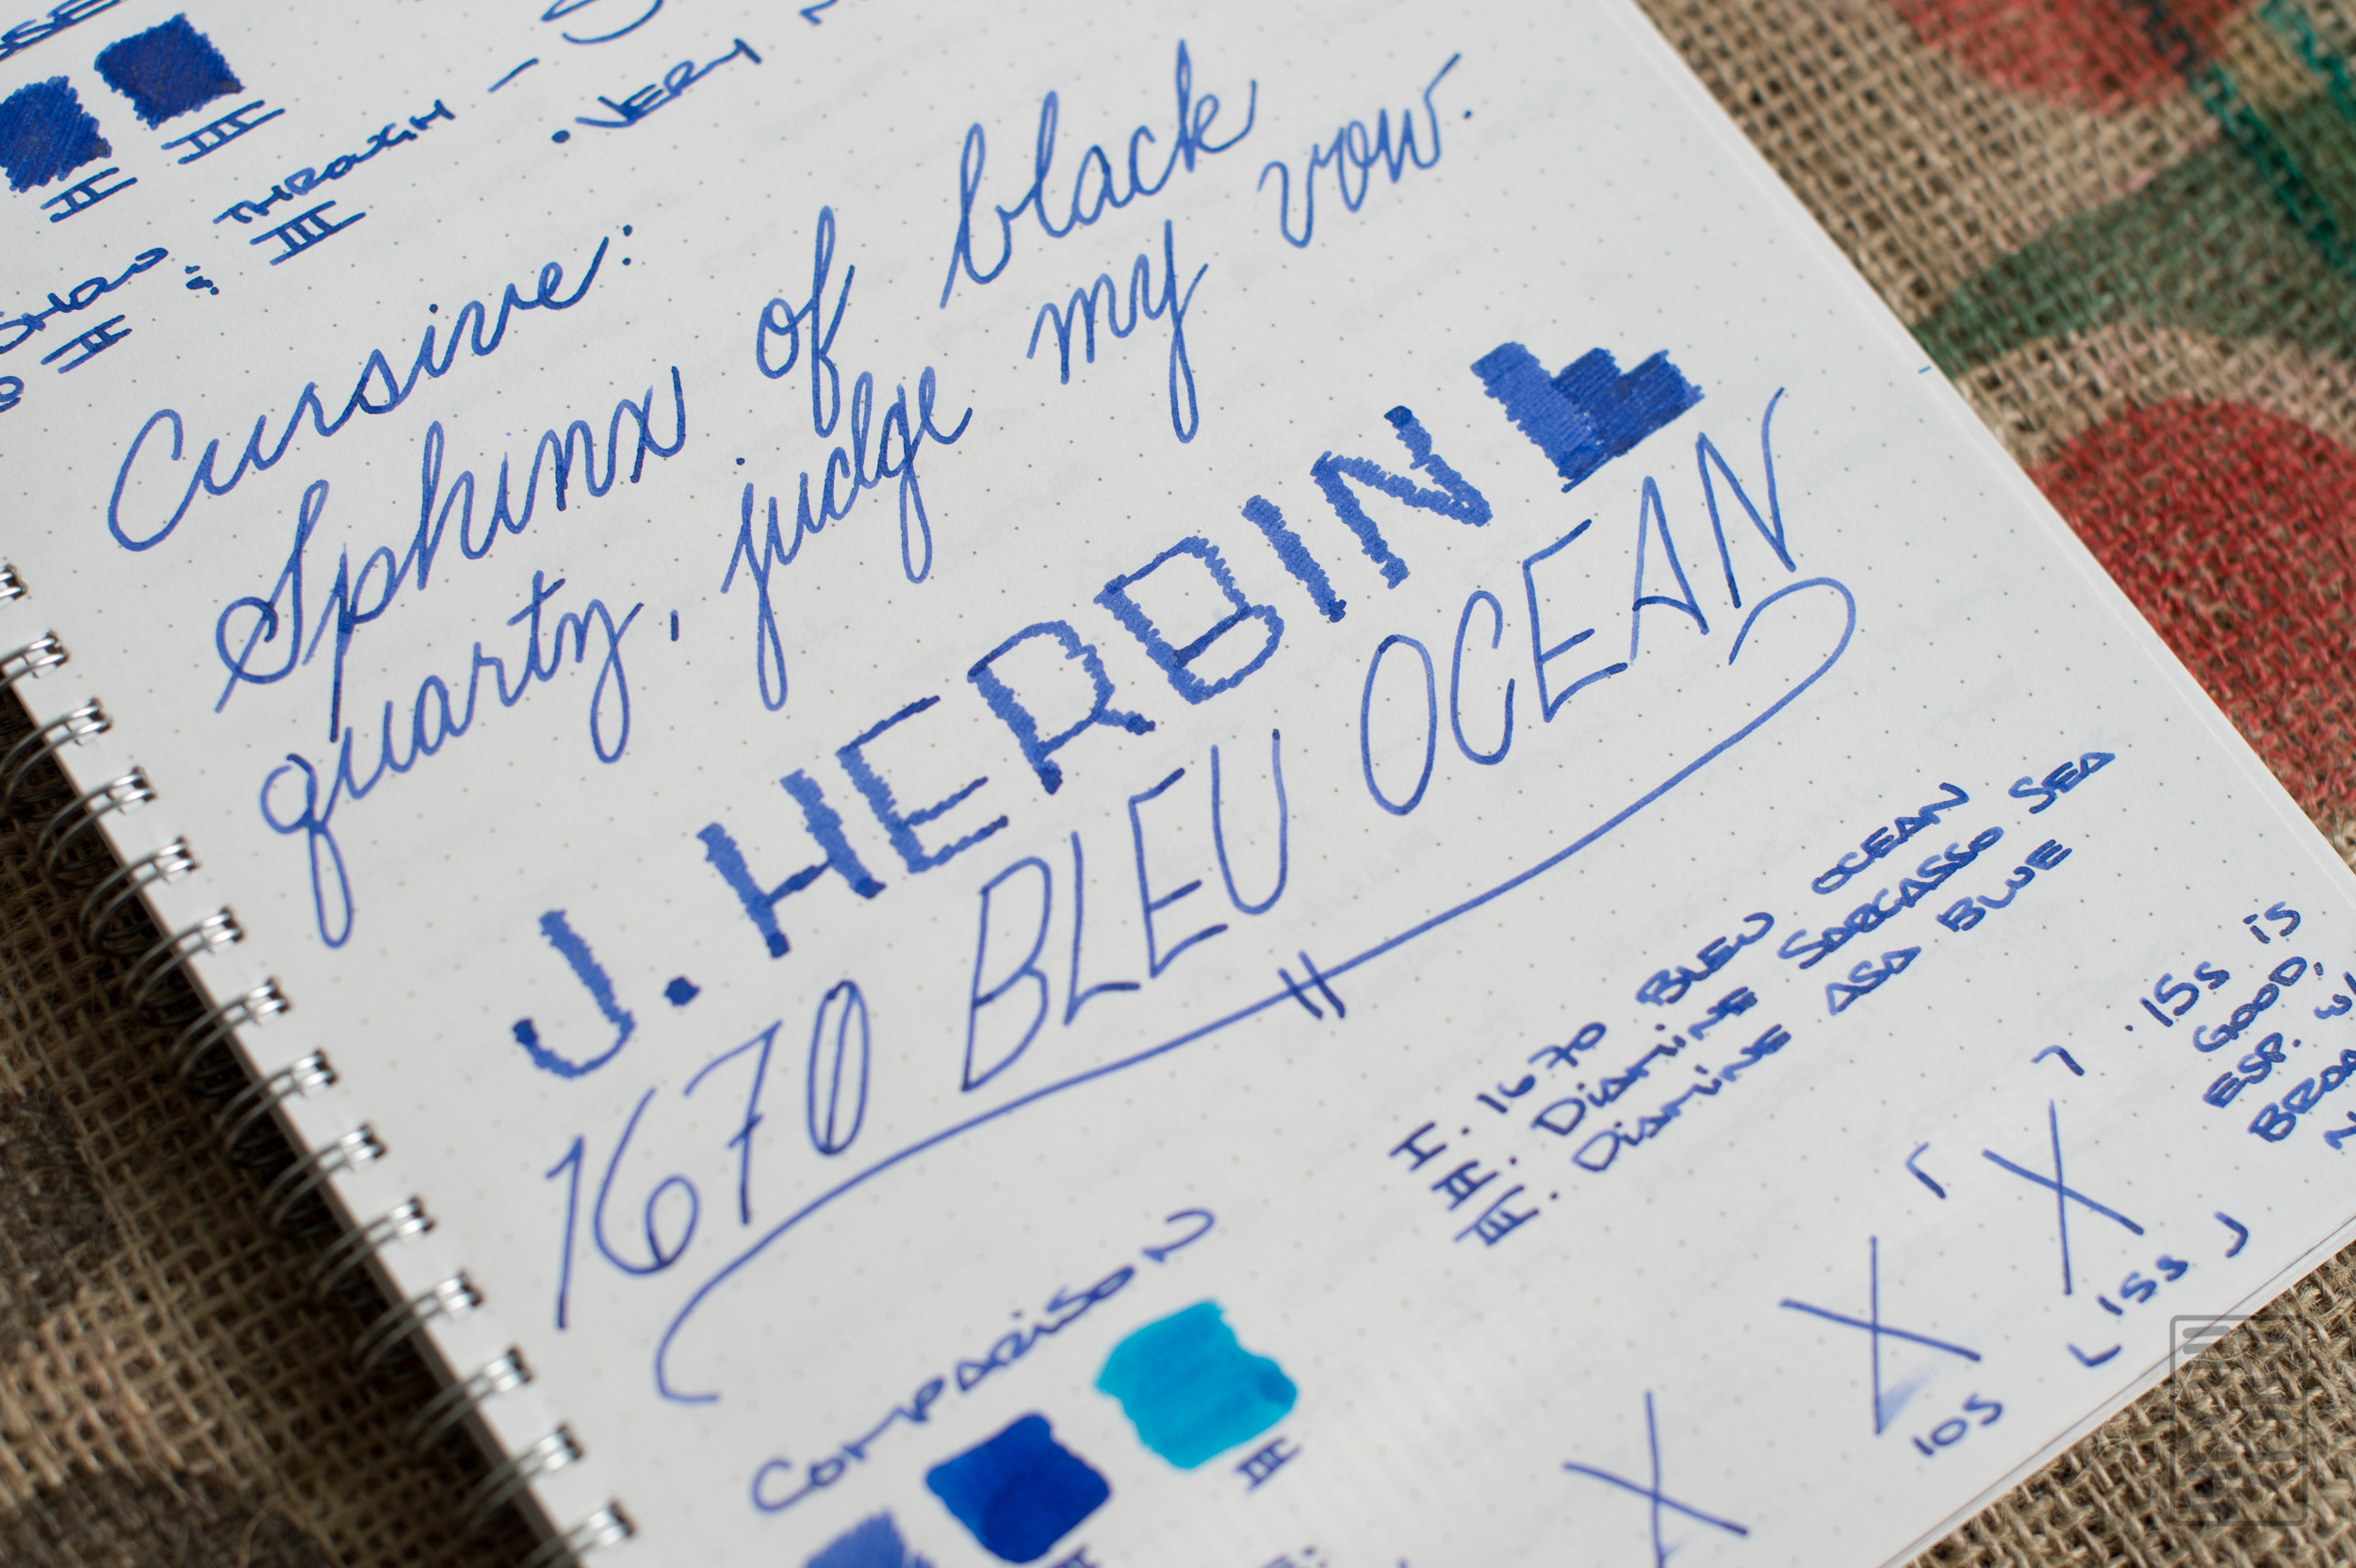 II III
THROUGH -
II : III
. VERY
Cursive:
Sphinx of black
quartz, judge my vow.
J. HERBIN
1670 BLEU OCEAN
I. 1670 BLEU OCEAN
II. Diamine SARGASSO SEA
III. Diamine ASA BLUE
Comparison
III
10s
15s
. 15s is
GOOD,
ESP.